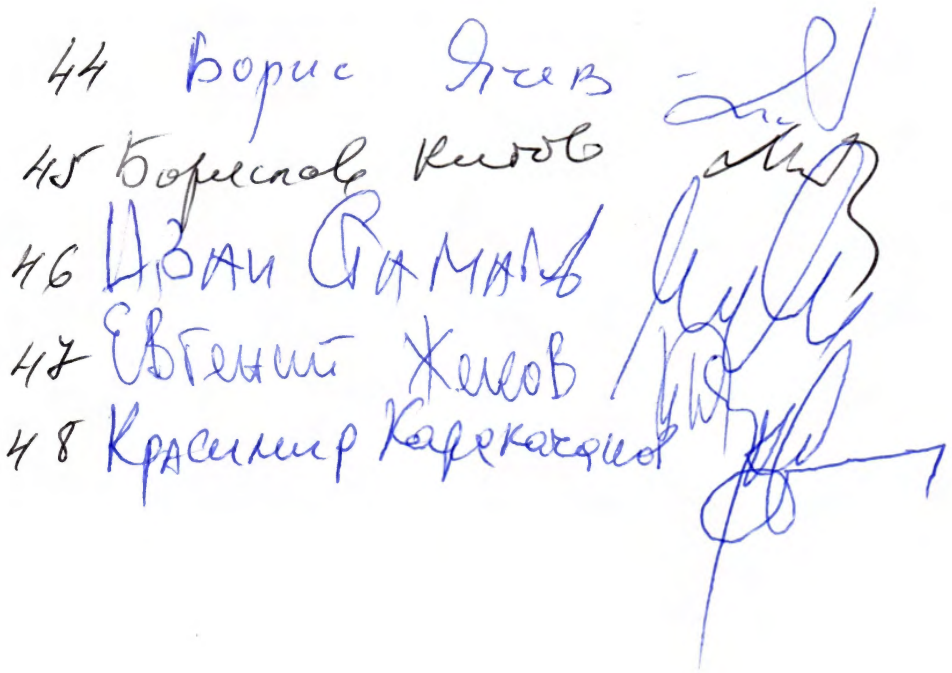 44 Борис Ячев -
45 Борислав Китов
46 Иван Стаматов
47 Евгений Жеков
48 Красимир Каракачанов